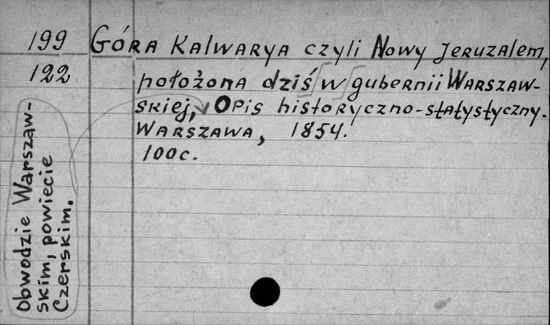 199
122
Góra Kalwarya czyli Nowy Jeruzalem,
położona dziś w gubernii Warszaw-
skiej, Opis historyczno-statystyczny.
Warszawa, 1854.
100c.
Obwodzie Warszaw-
skim, powiecie
Czerskim.